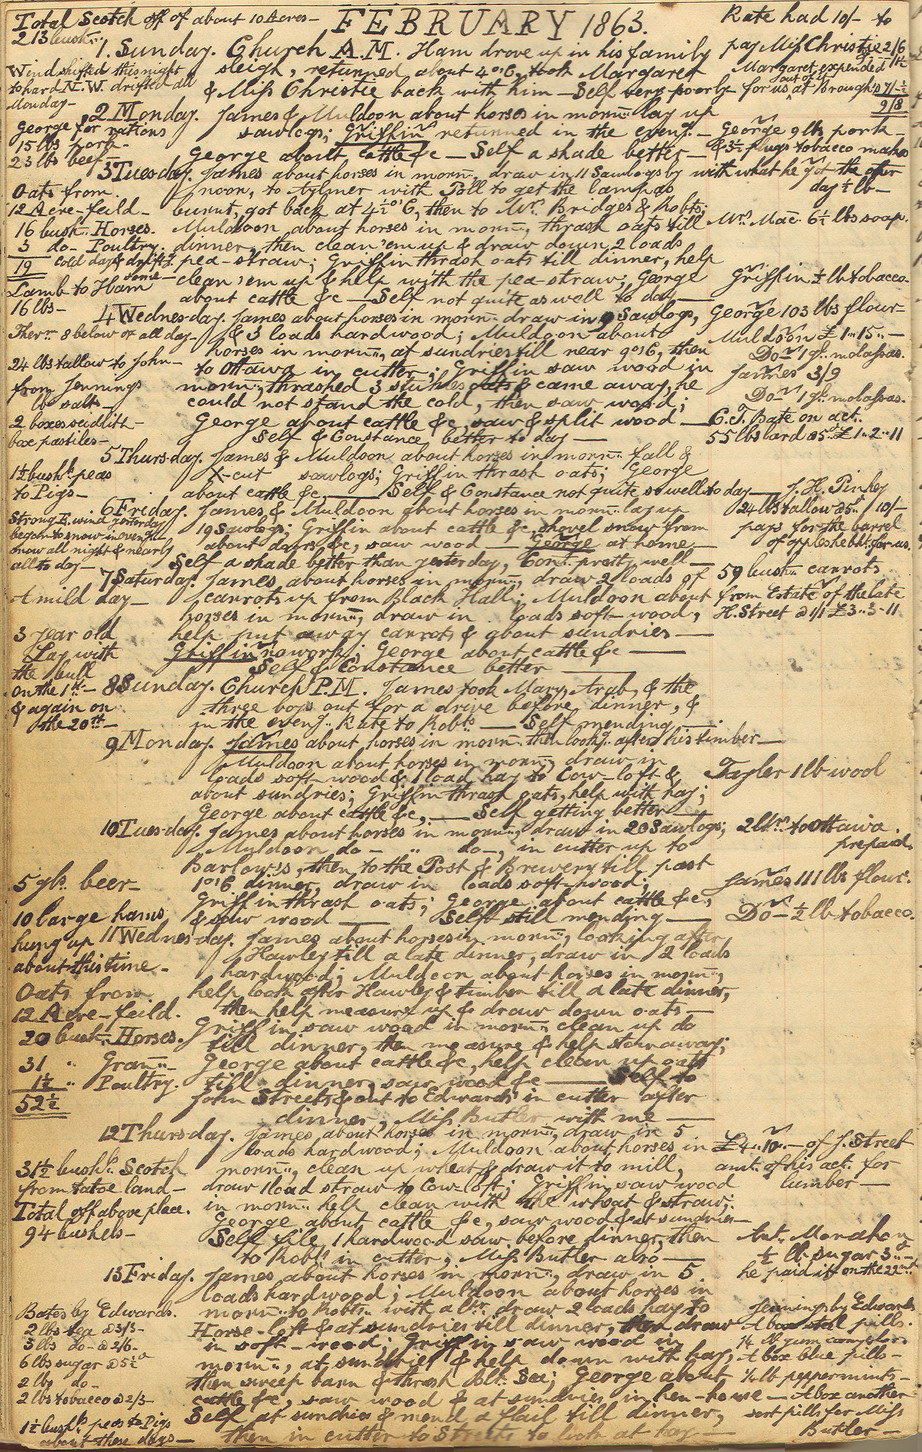 Total Scotch off of about 10 Acres—
213 bush.
FEBRUARY 1863.
Kate had 10/- to
pay Miss Christie 2/6
Margaret expended 1 1/2
out of it
for us at Broughs 7/-1/2
9/8
1. Sunday. Church A.M. Ham drove up in his family
sleigh, returned about 4 o'C, took Margaret
& Miss Christie back with him — Self very poorly
Wind shifted this night
to hard N.W. drifted all
Monday—
2 Monday. James & Muldoon about horses in morn. lay up
sawlogs; Griffin returned in the eveng. —
George about cattle &c — Self a shade better —
George for rations
15 lbs pork—
23 lbs beef—
George 9 lbs pork—
& 3 1/2 plugs tobacco makes
with what he got the other
day 1/2 lb—
3 Tuesday. James about horses in morn., draw in 11 Sawlogs by
noon, to Aylmer with Poll to get the lamp as
burnt, got back at 4 1/2 o'C, then to Mr. Bridges & Robts;
Muldoon about horses in morn., thrash oats till
dinner, then clean 'em up & draw down 2 loads
pea-straw; Griffin thrash oats till dinner, help
clean 'em up & help with the pea-straw; George
about cattle &c — Self not quite as well to day —
Oats from
12 Acre-feild—
16 bush. Horses.
3 do- Poultry.
19
Lamb to Ham
16 lbs—
Mrs. Mac. 6 1/2 lbs soap.
Griffin 1/2 lb tobacco.
4 Wednesday. James about horses in morn. draw in 9 Sawlogs,
& 3 loads hardwood; Muldoon about
horses in morn., at sundries till near 9 o'C, then
to Ottawa in cutter; Griffin saw wood in
morn., thrashed 3 sheaves oats & came away, he
could not stand the cold, then saw wood;
George about cattle &c, saw & split wood —
Self & Constance better to day —
Ther. 8 below 0 all day—
24 lbs tallow to John—
from Jennings
lb salts—
2 boxes seidlitz—
box pastiles—
George 103 lbs flour—
Muldoon £1..15..—
Do— 1 gl. molasses.
James 3/9
Do— 1 gl. molasses.
C.T. Bate on act.
55 lbs lard @5d £1..2..11
5 Thursday. James & Muldoon about horses in morn. fall &
X-cut sawlogs; Griffin thrash oats; George
about cattle &c, — Self & Constance not quite so well to day —
1 1/2 bush. peas
to Pigs—
J. H. Pinkey
24 lbs tallow @5d 10/-
pays for the barrel
of apples he bt. for us.
6 Friday. James & Muldoon about horses in morn. lay up
19 Sawlogs; Griffin about cattle &c, shovel snow from
about doors &c, saw wood — George at home—
Self a shade better than yesterday, Con. pretty well —
Strong E. wind yesterday
began to snow in eveng.
snow all night & nearly
all to day—
7 Saturday. James, about horses in morn., draw 2 loads of
carrots up from Black Hall; Muldoon about
horses in morn., draw in loads soft-wood,
help put away carrots & about sundries —
Griffin no work; George about cattle &c —
Self & Constance better —
A mild day—
59 bush. carrots
from Estate of the late
H. Street @ 1/1 £3..3..11
3 year old
Lay with
the bull
on the 1st—
& again on
the 20th—
8 Sunday. Church P.M. James took Mary, Arab, & the
three boys out for a drive before dinner, &
in the eveng. Kate to Robts — Self mending —
9 Monday. James about horses in morn. then lookg. after his timber—
Muldoon about horses in morn., draw in
loads soft-wood & 1 load hay to Cow-loft &
about sundries; Griffin thrash oats, help with hay;
George about cattle &c, — Self getting better —
Tayler 1 lb wool
10 Tuesday. James about horses in morn., draw in 20 Sawlogs;
Muldoon do— " do—, in cutter up to
Barlow's, then to the Post & Brewery till past
1 o'C dinner, draw in loads soft-wood;
Griffin thrash oats; George about cattle &c,
& saw wood — Self still mending —
2 lbs. to Ottawa
prepaid.
James 111 lbs flour.
Do— 1/2 lb tobacco.
5 gls. beer—
10 large hams
hung up
about this time—
11 Wednesday. James about horses in morn., looking after
Hawley till a late dinner, draw in 2 loads
hardwood; Muldoon about horses in morn.,
help look after Hawley & timber till a late dinner,
then help measure up & draw down oats—
Griffin, saw wood in morn. clean up do
till dinner, then measure & help stow away;
George about cattle &c, help clean up oats
till dinner, saw wood &c — Self to
John Streets & out to Edwards in cutter after
dinner, Miss Butler with me —
Oats from
12 Acre-feild.
20 bush. Horses.
31 " Gran.—
1 1/2 " Poultry.
52 1/2
12 Thursday. James about horses in morn., draw in 5
loads hardwood; Muldoon about horses in
morn., clean up wheat & draw it to mill,
draw 1 load straw to Cow-loft; Griffin saw wood
in morn. help clean with the wheat & straw;
George about cattle &c, saw wood & at sundries—
Self file 1 hardwood saw before dinner, then
to Robts in cutter, Miss Butler also —
31 1/2 bush. Scotch
from tatoe land—
Total off above place.
94 bushels—
£4..10..— of J. Street
amt. of his act. for
lumber —
Ant. Monahan
1/2 lb. sugar 3..—
he paid it on the 22nd
13 Friday. James about horses in morn., draw in 5
loads hardwood; Muldoon about horses in
morn. to Robts. with a ltr. draw 2 loads hay to
Horse-loft & at sundries till dinner, then draw
in soft-wood; Griffin saw wood in
morn., at sundries & help down with hay,
then sweep barn & thrash Blk. Sea; George about
cattle &c, saw wood & at sundries in hen-house —
Self at sundries & mend a flail till dinner,
then in cutter to Streets to look at hay —
Bates by Edwards.
2 lbs tea @3/3—
3 lbs do- @2/6—
6 lbs sugar @5 1/2d
2 lbs do—
2 lbs tobacco @2/3—
1 1/2 bush. peas to Pigs
about these days—
Jennings by Edwards
A box pills.
1/4 lb gum camphor
A box blue pills—
1/4 lb peppermints—
A box another
sort pills for Miss
Butler—